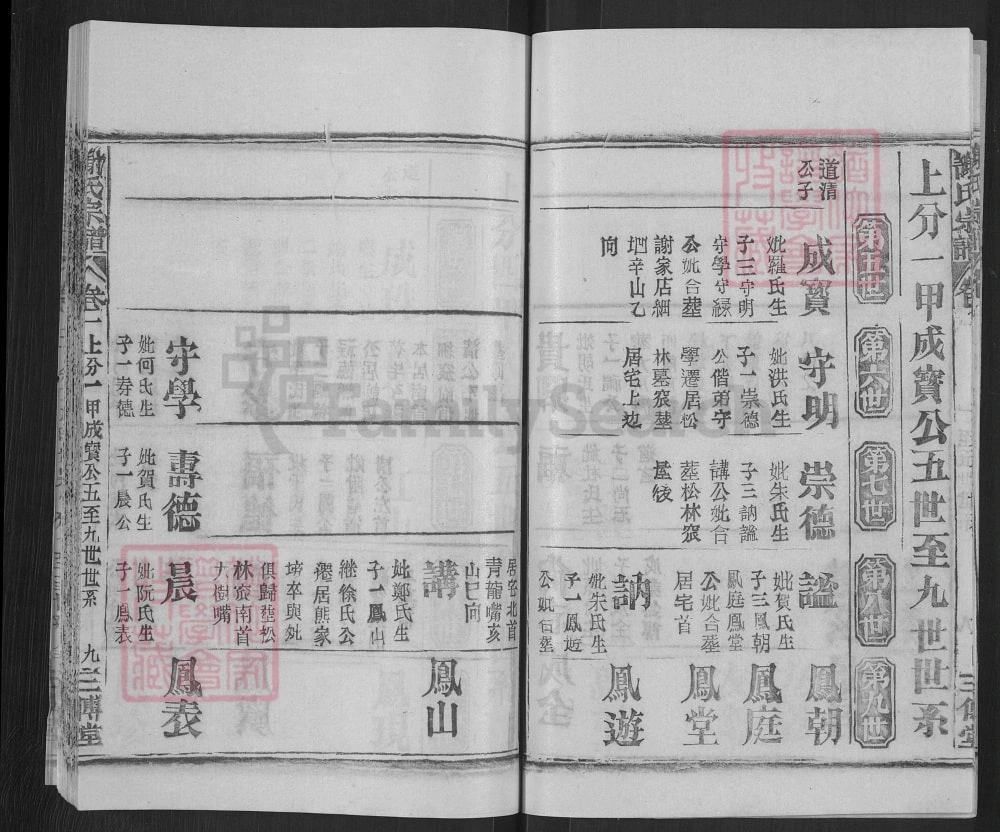 上分一甲成寶公五世至九世世系
第五世
第六世
第七世
第八世
第九世
道清
公子
成寶
妣羅氏生
子三守明
守學守祿
公妣合塟
謝家店細
地辛山乙
向
守明
妣洪氏生
子一崇德
公偕弟守
學遷居松
林墓窽塟
居宅上边
崇德
妣朱氏生
子三訥謐
講公妣合
塟松林窽
謐
妣賀氏生
子三鳳朝
鳳庭鳳堂
公妣合塟
居宅首
鳳朝
鳳庭
鳳堂
訥
妣朱氏生
子一鳳遊
公妣合塟
鳳遊
居宅北首
青龍嘴亥
山巳向
講
妣鄭氏生
子一鳳山
繼徐氏公
遷居熊家
塆卒與妣
俱歸塟松
林窽南首
大樹嘴
鳳山
守學
妣何氏生
子一壽德
壽德
妣賀氏生
子一晨公
晨
妣阮氏生
子一鳳表
鳳表
氏宗譜
卷一
上分一甲成寶公五至九世世系
九
三傅堂
FamilySearch